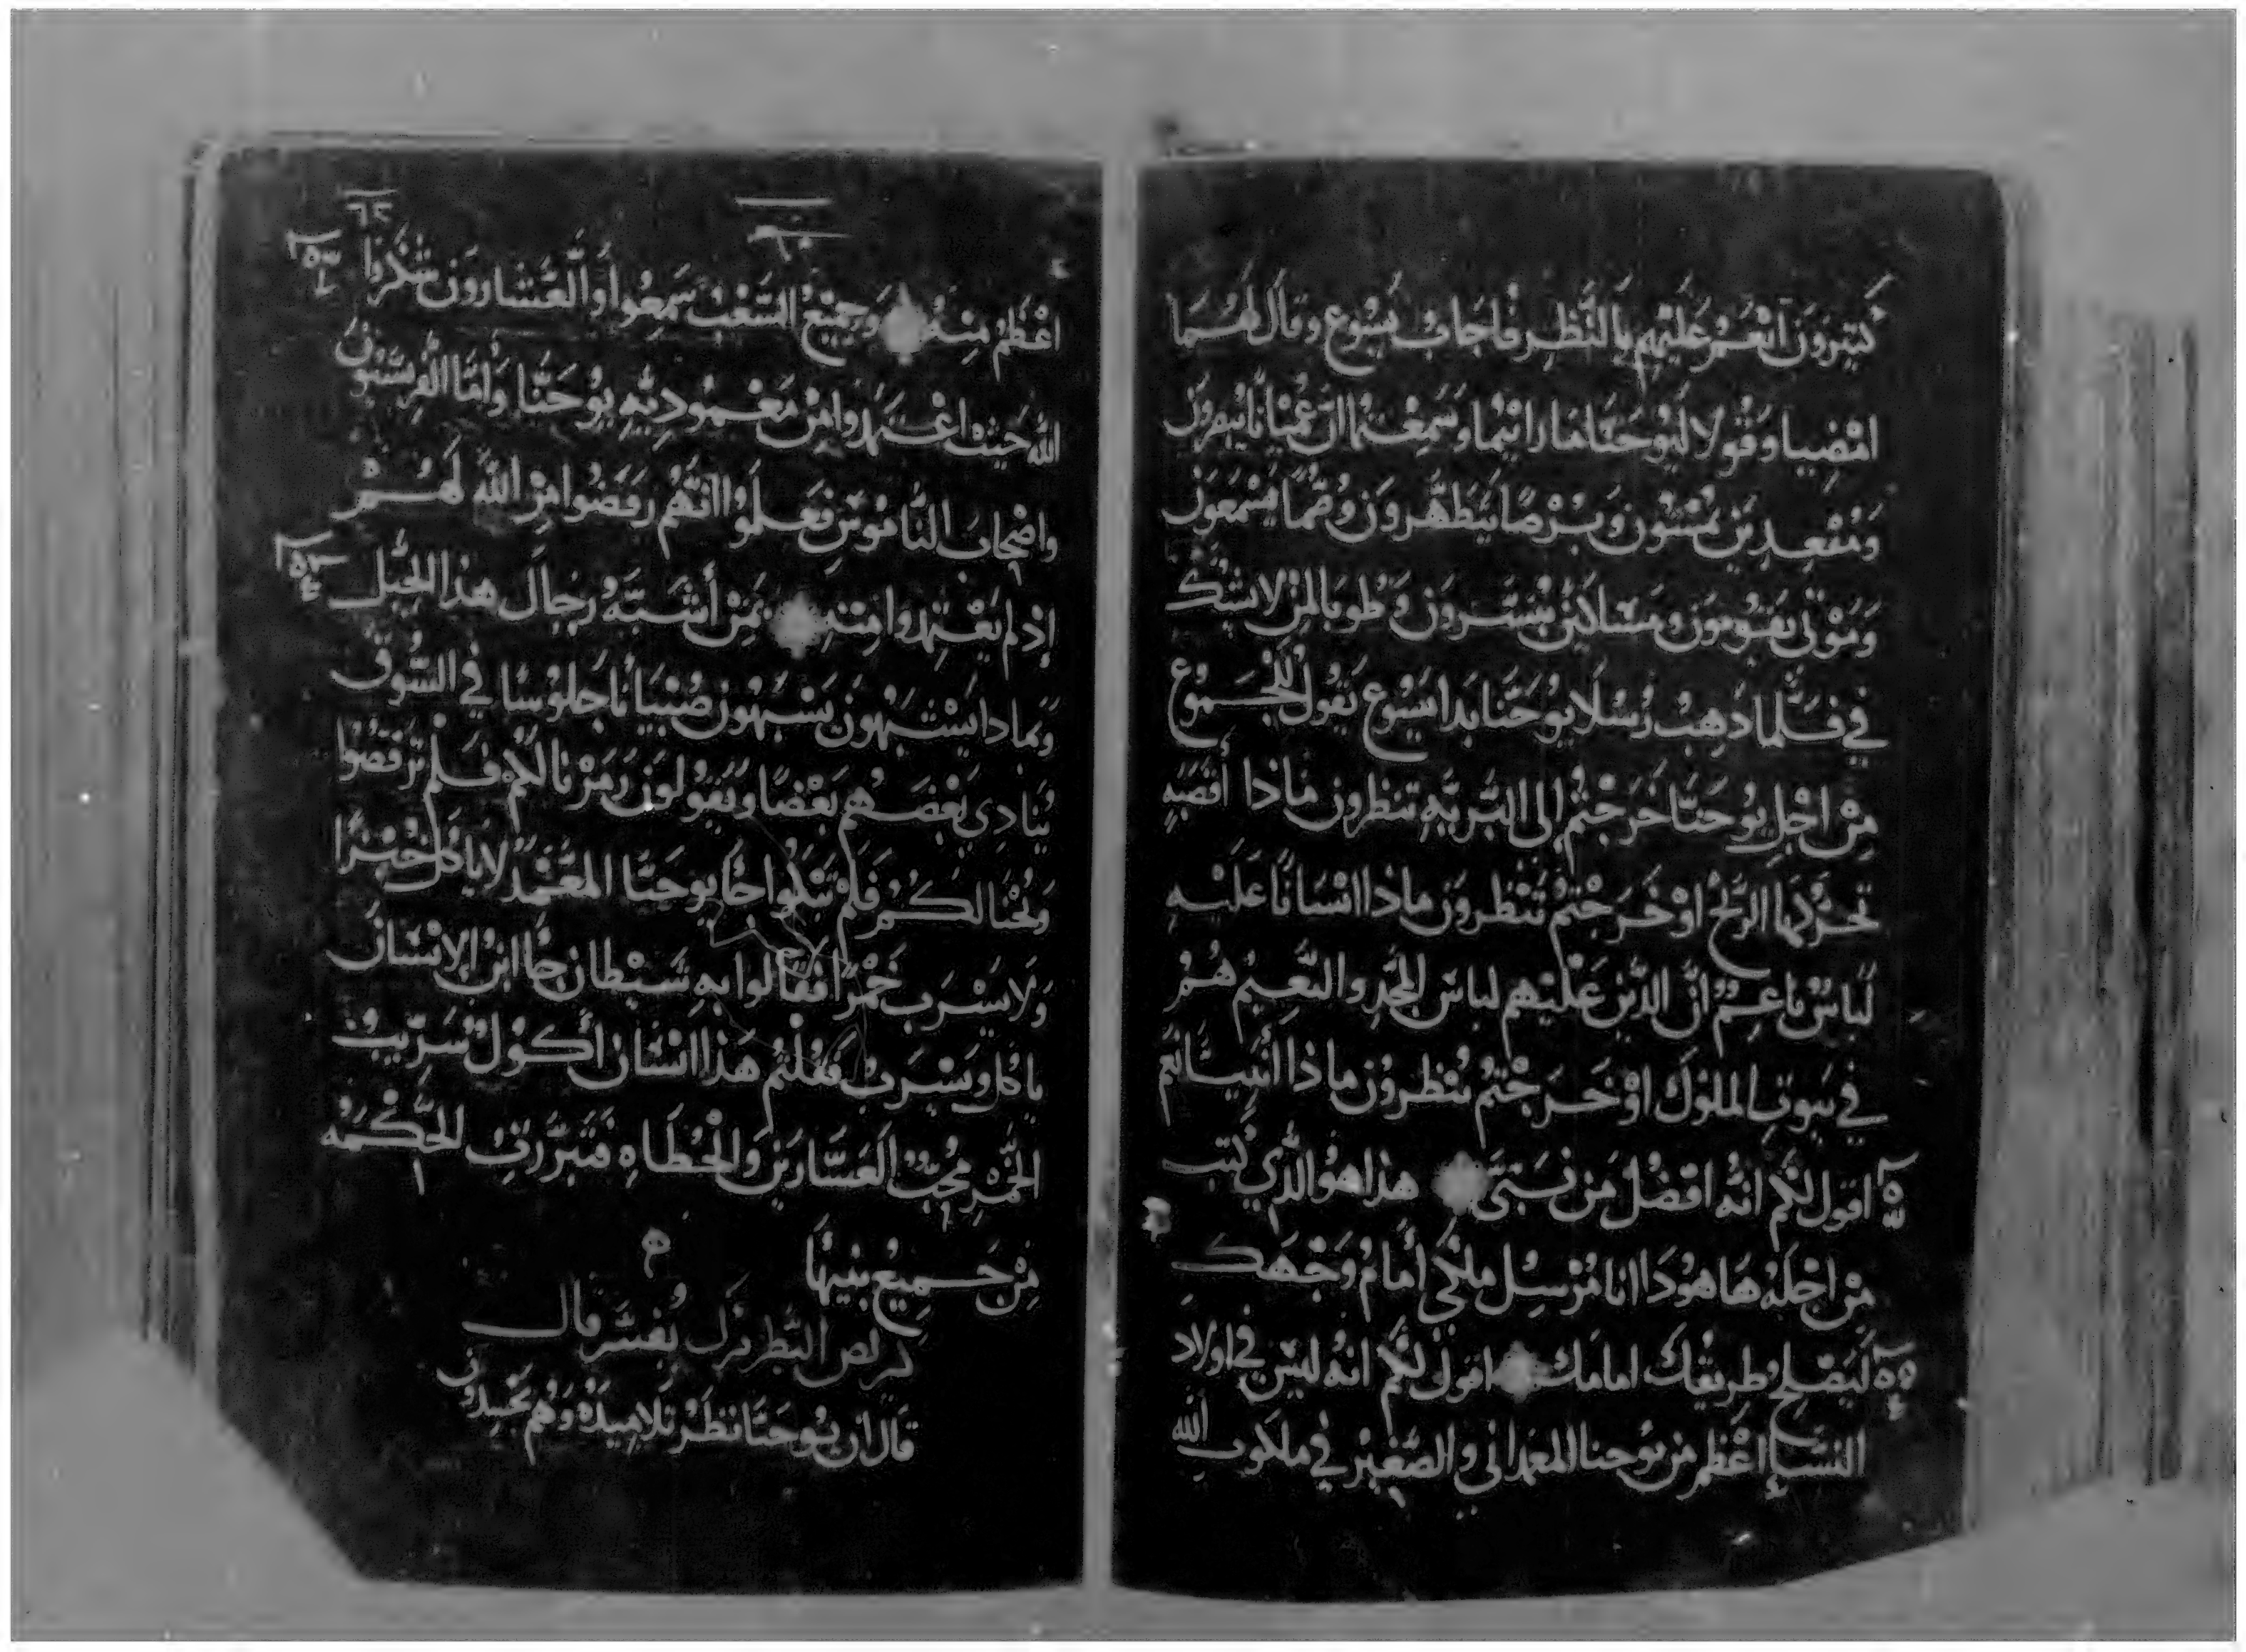 كثيرون انعم عليهم بالنظر فاجاب يسوع وقال لهما
امضيا وقولا ليوحنا ما رايتما وسمعتما ان عميانا يبصرون
ومقعدين يمشون وبرصا يتطهرون وصما يسمعون
وموتى يقومون ومساكين يبشرون وطوبا لمن لا يشك
في فلما ذهب رسلا يوحنا بدا يسوع يقول للجموع
من اجل يوحنا خرجتم الى البريه تنظرون ماذا أقصبه
تحركها الريح او خرجتم تنظرون ماذا انسانا عليه
لباس ناعم ان الذين عليهم لباس المجد والنعيم هم
في بيوت الملوك او خرجتم تنظرون ماذا أنبيا نعم
اقول لكم انه افضل من نبى هذا هو الذي كتب
من اجله هاهودا انا مرسل ملاكي أمام وجهك
ليصلح طريقك امامك اقول لكم انه ليس في اولاد
النساء اعظم من يوحنا المعمداني والصغير في ملكوت الله
اعظم منه وجميع الشعب سمعوا والعشارون شكروا
الله حيث اعتمدوا من معموديه يوحنا واما الفريسيون
واصحاب الناموس فعلموا انهم رفضوا امر الله لهم
إذ لم يعتمدوا منه بمن أشبه رجال هذا الجيل
وبماذا يشبهون يشبهون صبيانا جلوسا في السوق
ينادي بعضهم بعضا ويقولون زمرنا لكم فلم ترقصوا
ونحنا لكم فلم تبكوا جا يوحنا المعمد لا ياكل خبزا
ولا يشرب خمرا فقالوا به شيطان جا ابن الإنسان
ياكل ويشرب فقلتم هذا انسان أكول شريب
الخمر محب العشارين والخطاه فتبررت الحكمه
من جميع بنيها
قال ان يوحنا نظر تلاميذه وهم